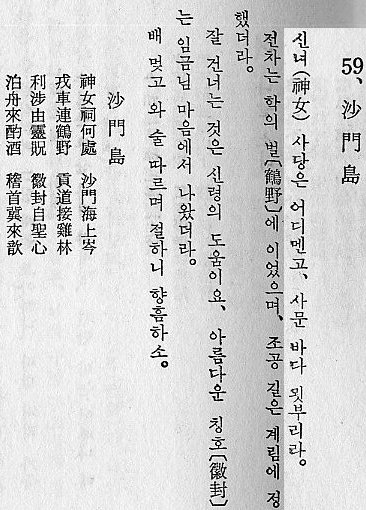 59、沙門島
신녀(神女) 사당은 어디멘고、사문 바다 묏부리라。
전차는 학의 벌〔鶴野〕에 이었으며、조공 길은 계림에 정
했더라。
잘 건너는 것은 신령의 도움이요、아름다운 칭호〔徽封〕
는 임금님 마음에서 나왔더라。
배 멎고 와 술 따르며 절하니 향흠하소。
沙門島
神女祠何處 沙門海上岑
戎車連鶴野 貢道接雞林
利涉由靈貺 徽封自聖心
泊舟來酌酒 稽首冀來歆